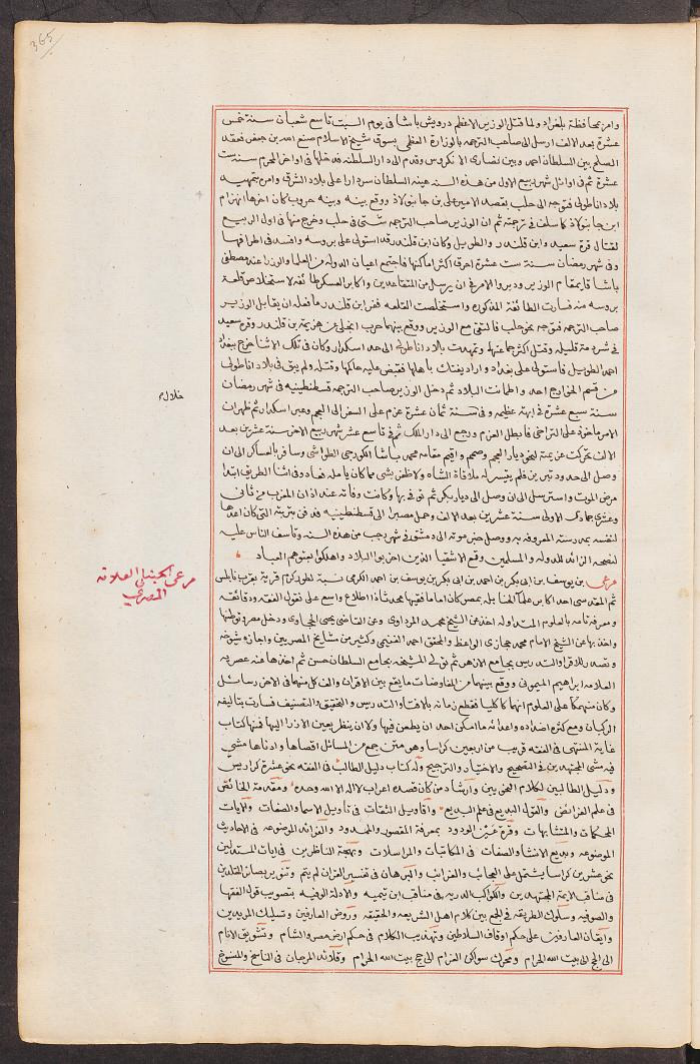 365
وامر بمحافظة بلغراد ولما قتل الوزير الاعظم درويش باشا فى يوم السبت تاسع شعبان سنة خمس
عشرة بعد الالف ارسل الى صاحب الترجمه بالوزارة العظمى بسوق شيخ الاسلام صنع الله بن جعفر فعقد
الصلح بين السلطان احمد وبين نصارى الانكروس وقدم الى دار السلطنه فدخلها فى اواخر المحرم سنة ست
عشرة ثم فى اوائل شهر ربيع الاول من هذه السنه عينه السلطان سردارا على بلاد الشرق وامره بتمهيد
بلاد اناطولى فتوجه الى حلب بقصد الامير على بن جانبولاذ ووقع بينه وبينه حروب كان اخرها انهزام
ابن جانبولاذ كما سلف فى ترجمته ثم ان الوزير صاحب الترجمه شتى فى حلب وخرج منها فى اول الربيع
لقتال قره سعيد وابن قلندر والطويل وكان ابن قلندر قد استولى على بروسه وافسد فى اطرافها
وفى شهر رمضان سنة ست عشرة احرق اكثر اماكنها فاجتمع اعيان الدوله من العلما والوزرا عند مصطفى
باشا قايمقام الوزير ودبروا الامر فى ان يرسل من المتقاعدين واكابر العسكر طائفه لاستخلاص قلعة
بروسه منه فسارت الطائفة المذكوره واستخلصت القلعه ففر ابن قلندر قاصدا ان يقابل الوزير
صاحب الترجمه فتوجه نحو حلب فالتقى مع الوزير ووقع بينهما حرب انجلى عن هزيمة بن قلندر وقره سعيد
فى شرذمة قليله وقتل اكثر جماعتهما وتمهدت بلاد اناطولى الى حد اسكدار وكان فى تلك الاثنا خرج ببغداد
احمد الطويل فاستولى على بغداد واراد يفتك باهلها فقبض عليه حاكمها وقتله ولم يبق فى بلاد اناطولى
من قسم الخوارج احد واطمانت البلاد ثم دخل الوزير صاحب الترجمه قسطنطينيه فى شهر رمضان
سنة سبع عشرة فى ابهة عظيمه وفى سنة ثمان عشرة عزم على السفر الى العجم وعبر اسكدار ثم ظهر ان
الامر ماخوذ على التراخى فابطل العزم ورجع الى دار الملك ثم فى تاسع عشر شهر ربيع الاخر سنة عشرين بعد
الالف تحركت عزيمته لنحو ديار العجم وصمم واقيم مقامه محمد باشا الكورجى الطواشى وسافر بالعساكر الى ان
وصل الى حدود تبريز فلم يتيسر له ملاقاة الشاه ولا ظفر بشى مما كان يامله فعاد وفى اثنا الطريق ابتدا
مرض الموت واسترسل الى ان وصل الى ديار بكر ثم توفى بها وكانت وفاته عند اذان المغرب من ثانى
وعشرى جمادى الاولى سنة عشرين بعد الالف وحمل مصبرا الى قسطنطينيه فدفن بتربته التى كان اعدها
لنفسه بمدرسته المعروفه به ووصل خبر موته الى دمشق فى شهر رجب من هذه السنه وتاسف الناس عليه
لنصحه الزائد للدوله والمسلمين وقمع الاشقيا الذين اخربوا البلاد واهلكوا بعتوهم العباد
مرعى بن يوسف بن ابى بكر بن احمد بن ابى بكر بن يوسف بن احمد الكرمى نسبة لطور كرم قرية بقرب نابلس
ثم المقدسى احد اكابر علما الحنابله بمصر كان اماما فقيها محدثا ذا اطلاع واسع على نقول الفقه ودقائقه
ومعرفة تامه بالعلوم المتداوله اخذ عن الشيخ محمد المرداوى وعن القاضى يحيى الحجاوى ودخل مصر وتوطنها
واخذ بها عن الشيخ الامام محمد حجازى الواعظ والمحقق احمد الغنيمى وكثير من مشايخ المصريين واجازه شيوخه
وتصدر للاقرا والتدريس بجامع الازهر ثم تولى المشيخه بجامع السلطان حسن ثم اخذها عنه عصريه
العلامه ابراهيم الميمونى ووقع بينهما من المفاوضات ما يقع بين الاقران والف كل منهما فى الاخر رسائل
وكان منهمكا على العلوم انهماكا كليا فقطع زمانه بالافتا والتدريس والتحقيق والتصنيف فسارت بتاليفه
الركبان ومع كثرة اضداده واعدائه ما امكن احد ان يطعن فيها ولا ان ينظر بعين الازرا اليها فمنها كتاب
غاية المنتهى فى الفقه قريب من اربعين كراسا وهو متن جمع من المسائل اقصاها وادناها مشى
فيه مشى المجتهدين فى التصحيح والاختيار والترجيح وله كتاب دليل الطالب فى الفقه نحو عشرة كراريس
ودليل الطالبين لكلام النحويين وارشاد من كان قصده اعراب لا اله الا الله وحده ومقدمة الخائض
فى علم الفرائض والقول البديع فى علم البديع واقاويل الثقات فى تاويل الاسما والصفات والايات
المحكمات والمتشابهات وقرة عين الودود بمعرفة المقصور والممدود والفوائد الموضوعه فى الاحاديث
الموضوعه وبديع الانشا والصفات فى المكاتبات والمراسلات وبهجة الناظرين فى ايات المستدلين
نحو عشرين كراسا يشتمل على العجائب والغرائب والبرهان فى تفسير القران لم يتم وتنوير بصائر المقلدين
فى مناقب الايمة المجتهدين والكواكب الدريه فى مناقب ابن تيميه والادلة الوفيه بتصويب قول الفقها
والصوفيه وسلوك الطريقه فى الجمع بين كلام اهل الشريعه والحقيقه وروض العارفين وتسليك المريدين
وايقاف العارفين على حكم اوقاف السلاطين وتهذيب الكلام فى حكم ارض مصر والشام وتشويق الانام
الى الحج الى بيت الله الحرام ومحرك سواكن الغرام الى حج بيت الله الحرام وقلائد المرجان فى الناسخ والمنسوخ
مرعى الحنبلى العلامة
المصرى